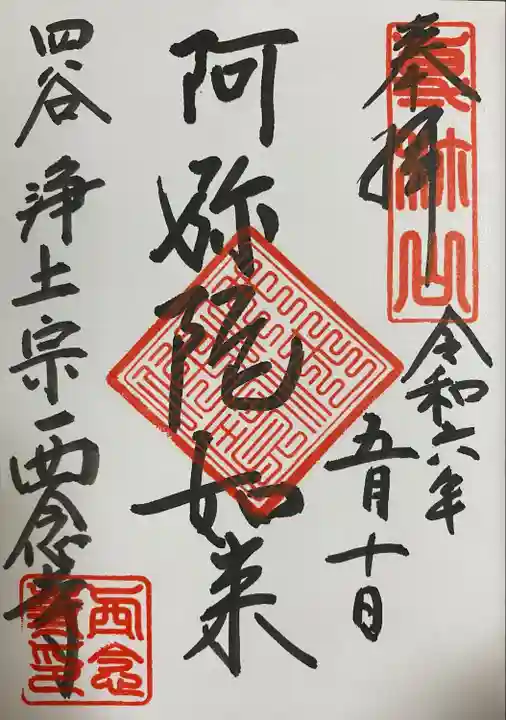 奉拝
令和六年
五月十日
阿弥陀如来
四谷 浄土宗 西念寺
西念
寺印